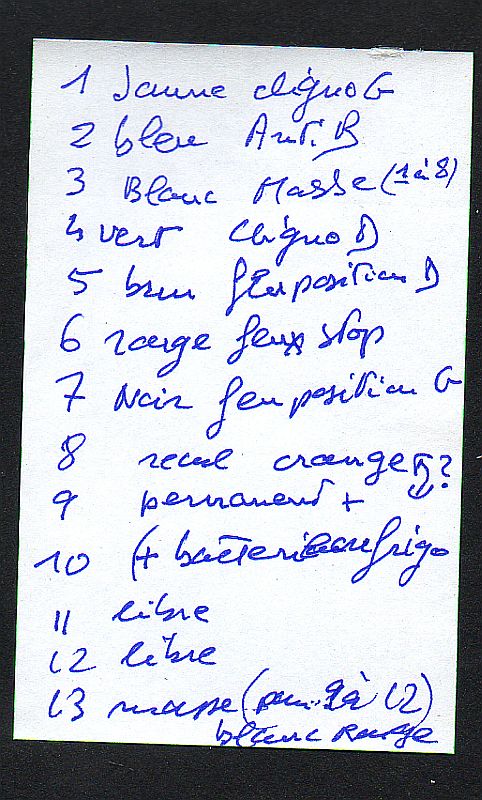 1 Jaune clignoG
2 bleu AntiB
3 Blanc Masse (1 à 8)
4 vert clignoD
5 brun feu position D
6 rouge feux stop
7 Noir feu position G
8 recul orange ?
9 permanent +
10 (+ batterie frigo
11 libre
12 libre
13 masse (pour 9 à 12)
blanc rouge